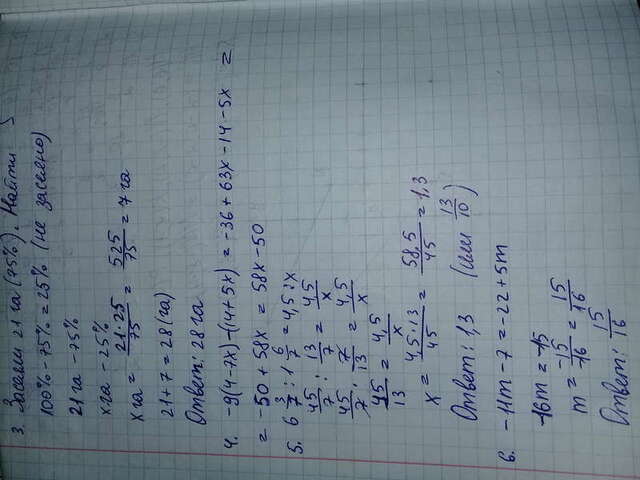 3. Засеяли 21 га (75%). Найти S
100% - 75% = 25% (не засеяно)
21 га - 75%
x га - 25%
x га = 21·25/75 = 525/75 = 7 га
21 + 7 = 28 (га)
Ответ: 28 га
4. -9(4-7x)-(14+5x) = -36+63x-14-5x =
= -50+58x = 58x-50
5. 6 3/7 : 1 6/7 = 4,5 : x
45/7 : 13/7 = 4,5/x
45/7 · 7/13 = 4,5/x
45/13 = 4,5/x
x = 4,5·13/45 = 58,5/45 = 1,3
Ответ: 1,3 (или 13/10)
6. -11m - 7 = -22 + 5m
-16m = -15
m = -15/-16 = 15/16
Ответ: 15/16